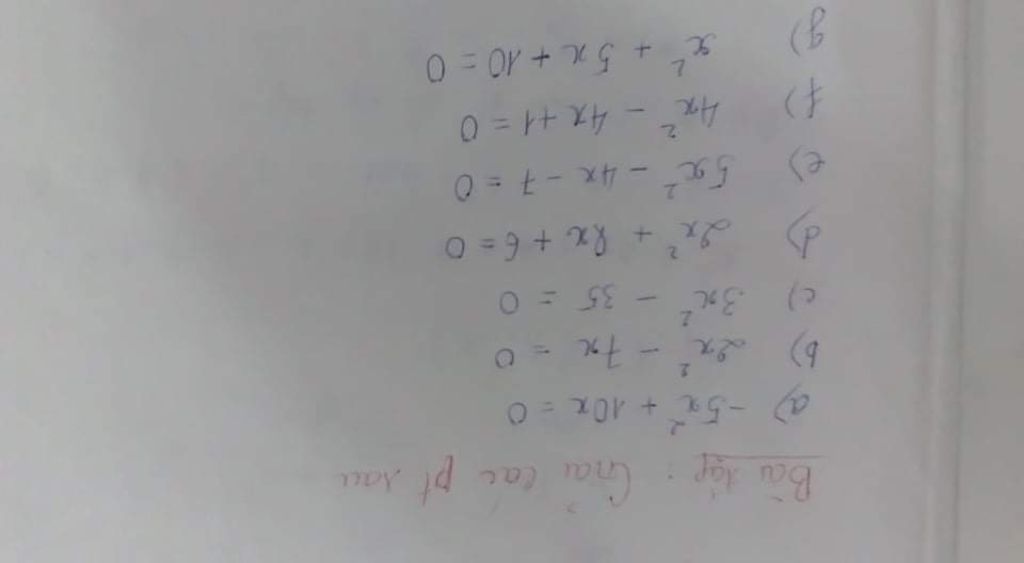 Bài tập : Giải các pt sau
a) -5x² + 10x = 0
b) 2x² - 7x = 0
c) 3x² - 35 = 0
d) 2x² + 8x + 6 = 0
e) 5x² - 4x - 7 = 0
f) 4x² - 4x + 1 = 0
g) x² + 5x + 10 = 0